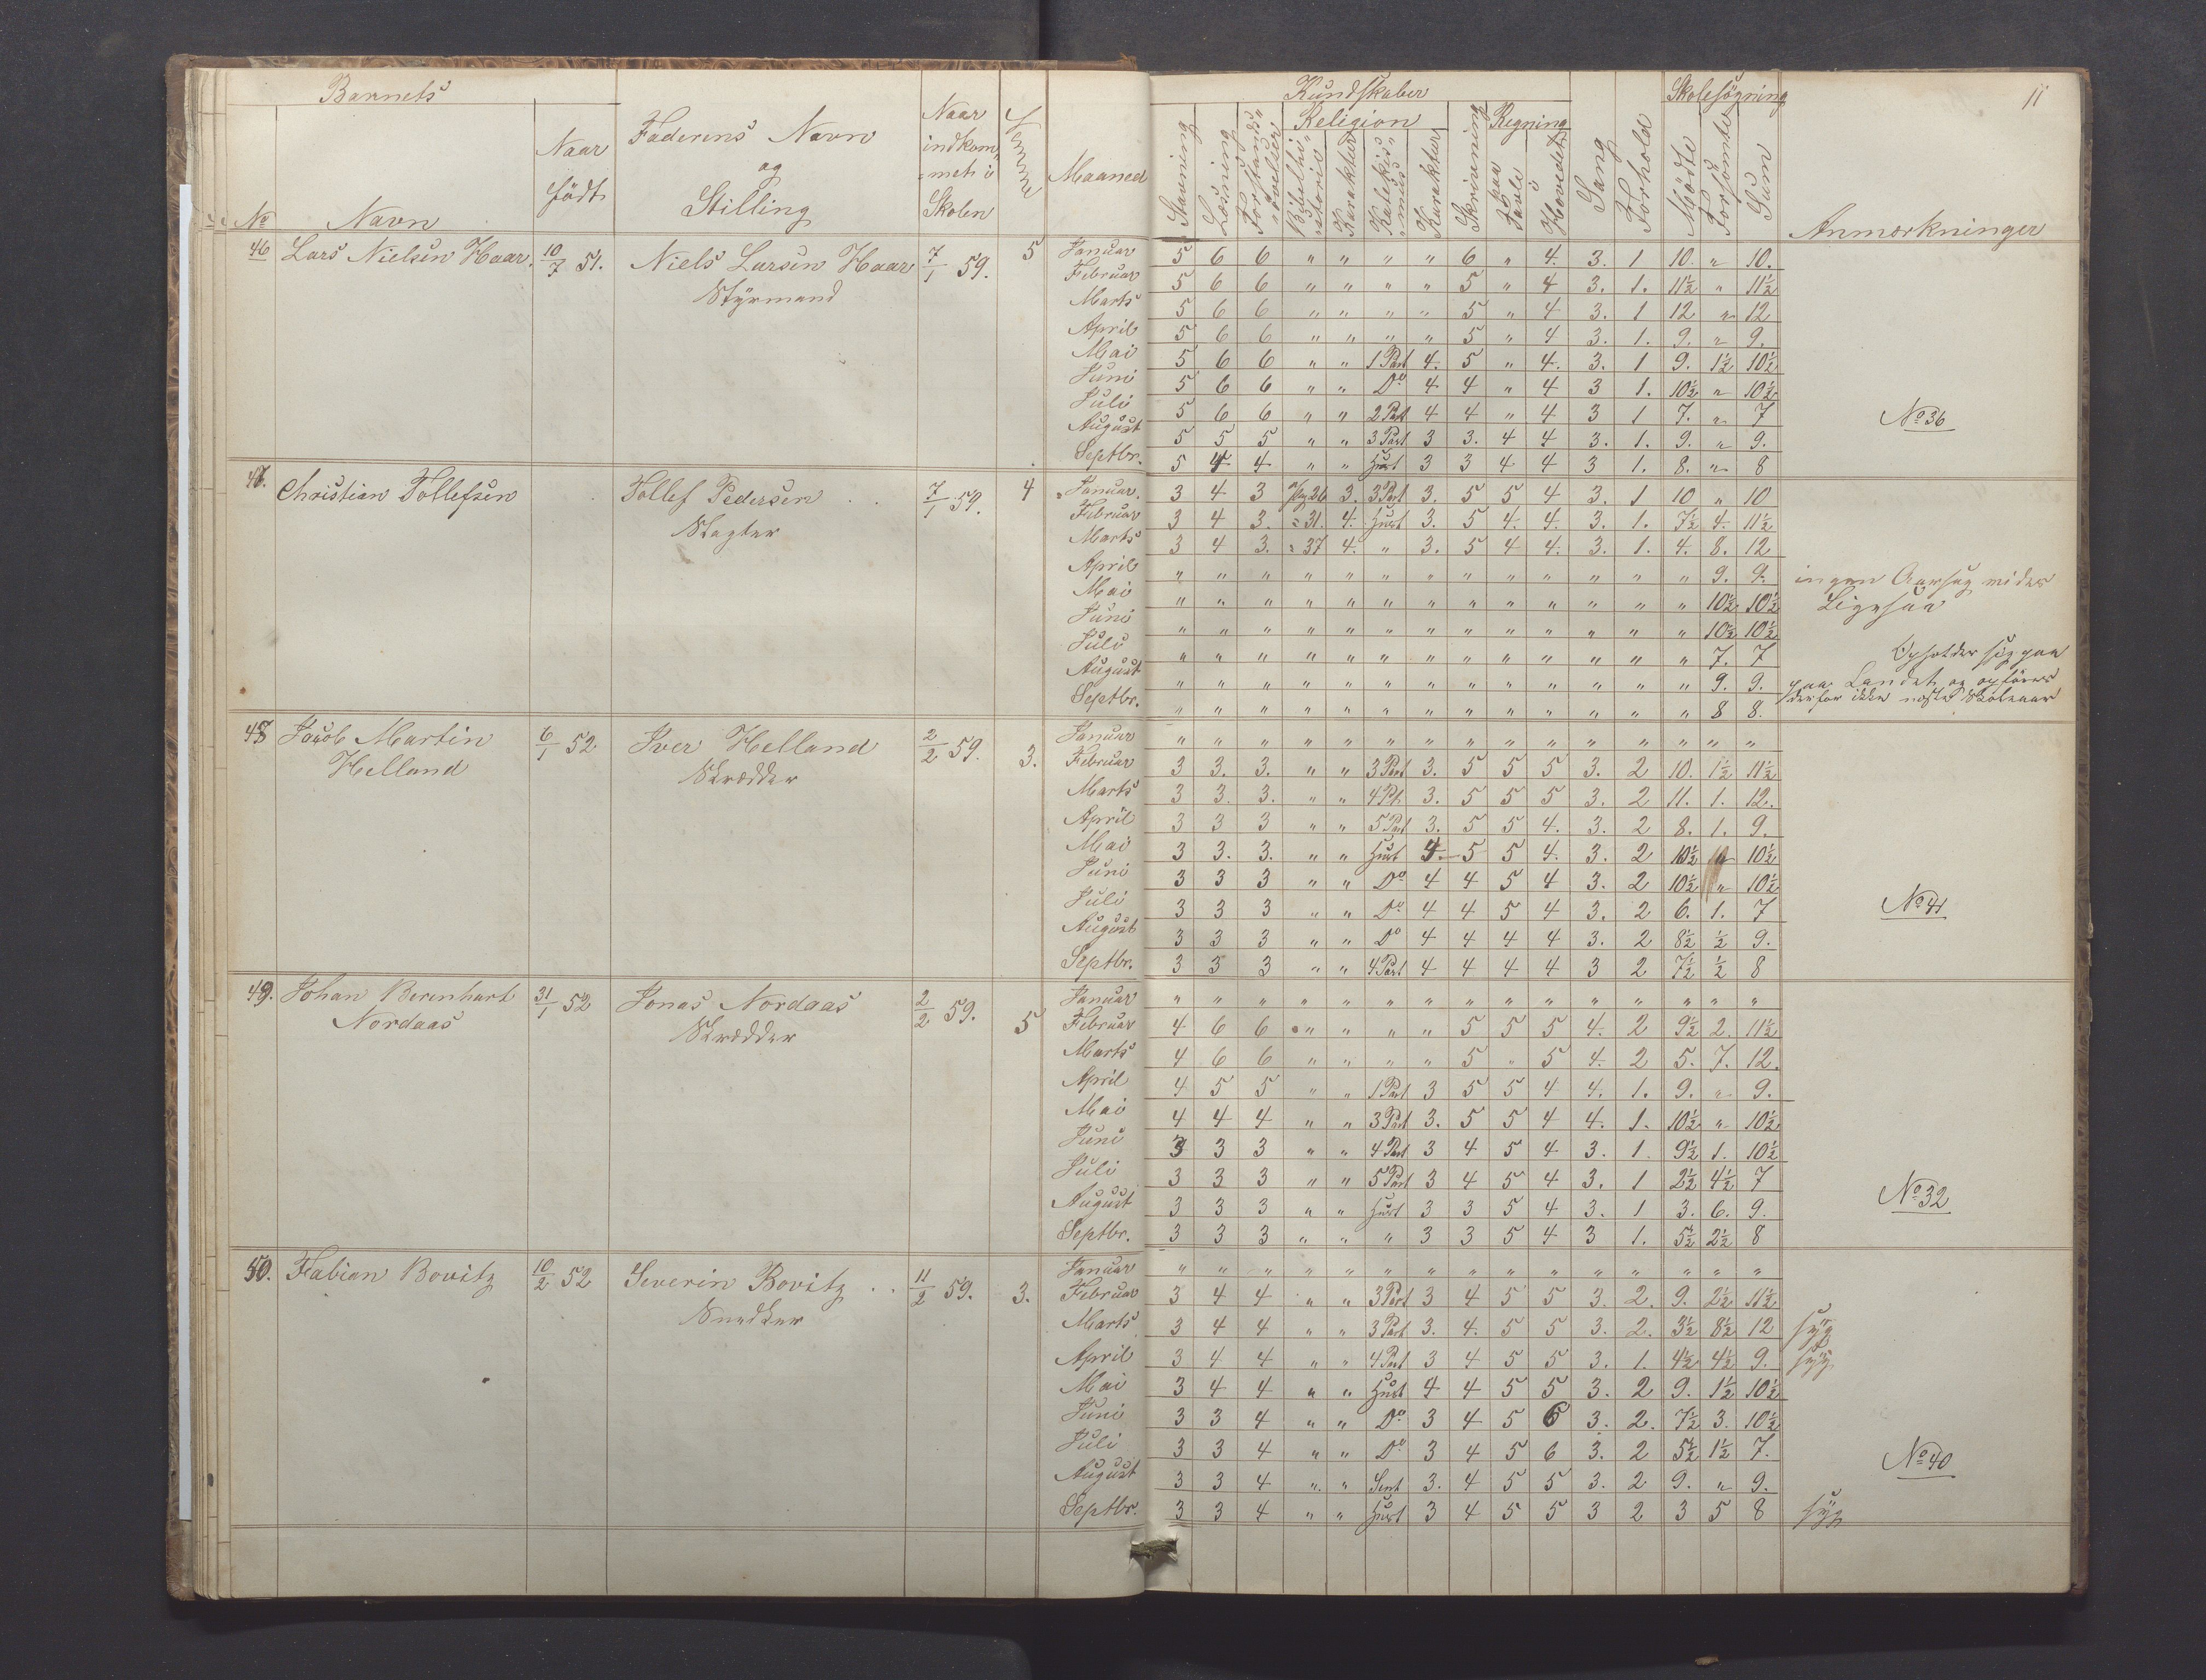 Barnets
No
Navn
Naar født
Faderens Navn og Stilling
Naar indkommet i Skolen
Maaned
Kundskaber
Religion
Regning
Skolesøgning
11
Stavning
Læsning
Karakter
Karakter
Skrivning
paa Tavle
i Hovedet
Sang
Forhold
Mødte
Forsømte
Sum
Anmærkninger
46 Lars Nielsen Haar. 10/7 51. Niels Larsen Haar 7/1 59. 5
Styrmand
Januar 5 6 6 " " " " 6 " 4. 3. 1 10. " 10.
Februar 5 6 6 " " " " 5 " 4 3. 1. 11½ " 11½
Marts 5 6 6 " " " " 5 " 4 3. 1 12 " 12
April 5 6 6 " " " " 5 " 4 3. 1. 9. " 9.
Mai 5 6 6 " " 1 Part 4. 5 " 4. 3. 1 9. 1½ 10½
Juni 5 6 6 " " Do 4 4 " 4 3 1. 10½ " 10½
Juli 5 6 6 " " 2 Part 4 4 " 4 3 1 7. " 7
August 5 5 5 " " 3 Part 3 3. 4 4 3. 1. 9. " 9.
Septbr. 5 4 4 " " 3 3 4 4 3 1. 8. " 8
No 36
47. Christian Tollefsen Tollef Pedersen 7/1 59. 4
Slagter
Januar. 3 4 3 26 3. 3 Part 3. 5 5 4 3. 1 10 " 10
Februar 3 4 3. " 31. 4. 3. 5 4. 4. 3. 1. 7½ 4. 11½
Marts 3 4 3. " 37 4. " 3. 5 4 4. 3. 1. 4. 8. 12
April " " " " " " " " " " " " " 9. 9. ingen Aarsag
Mai " " " " " " " " " " " " " 10½ 10½ Ligesaa
Juni " " " " " " " " " " " " " 10½ 10½
Juli " " " " " " " " " " " " " 7. 7 Opholder sig paa
August " " " " " " " " " " " " " 9. 9. paa Landet og opføres
Septbr. " " " " " " " " " " " " " 8 8. derfor ikke næste Skoleaar
48 Jacob Martin Helland 6/1 52 Iver Helland 2/2 59. 3.
Skrædder
Januar " " " " " " " " " " " " " " "
Februar 3 3. 3. " " 3 Part 3. 5 5 5 3. 2 10. 1½ 11½
Marts 3 3. 3. " " 4 Pt. 3. 5 5 5 3. 2 11. 1. 12.
April 3 3 3 " " 5 Part 3. 5 5 4. 3. 2 8. 1. 9.
Mai 3 3. 3. " " 4. 5 5 4. 3. 2 10½ " 10½
Juni 3 3 3 " " Do 4 4 5 4 3. 2 10½ " 10½
Juli 3 3 3 " " Do 4 4 5 4 3. 2 6. 1. 7
August 3 3 3 " " Do 4 4 4 4 3. 2 8½ ½ 9.
Septbr. 3 3 3 " " 4 Part 4 4 4 4 3 2 7½ ½ 8
No 41
49. Johan Berenhart Nordaas 31/1 52 Jonas Nordaas 2/2 59. 5
Skrædder
Januar " " " " " " " " " " " " " " "
Februar 4 6 6 " " " " 5 5 5 4. 2 9½ 2. 11½
Marts 4 6 6 " " " " 5 " 5 4. 2 5. 7. 12.
April 4 5 5 " " 1 Part 3 5 5 4 4. 1. 9. " 9.
Mai 4 4 4 " " 3 Part 3. 5 5 4 4. 1. 10½ " 10½
Juni 3 3 3 " " 4 Part 3 4 5 4 3. 1. 9½ 1. 10½
Juli 3 3 3 " " 5 Part 3 4 5 4 3. 1 2½ 4½ 7
August 3 3 3 " " 3 3 5 4 3. 1 3. 6. 9.
Septbr. 3 3 3 " " " 3 3 5 4 3 1. 5½ 2½ 8
No 32
50. Fabian Bovitz 10/2 52 Severin Bovitz 11/2 59. 3.
Snedker
Januar " " " " " " " " " " " " " " "
Februar 3 4 4 " " 3 Part 3 4 5 5 3. 2. 9. 2½ 11½
Marts 3 4 4 " " 3 Part 3. 4. 5 5 3. 2. 3½ 8½ 12 syg
April 3 4 4 " " 4 Part 3 4 5 5 3. 1. 4½ 4½ 9. syg
Mai 3 4 4 " " 4 4 5 5 3. 2 9. 1½ 10½
Juni 3 3 4 " " Do 3 4 5 6 3. 2. 7½ 3. 10½
Juli 3 3 4 " " Do 3 4 5 6 3. 2 5½ 1½ 7.
August 3 3 4 " " 3. 4 5 5 3. 2 9. " 9.
Septbr. 3 3 4 " " 3 4 5 5 3 2 3 5 8 syg
No 40